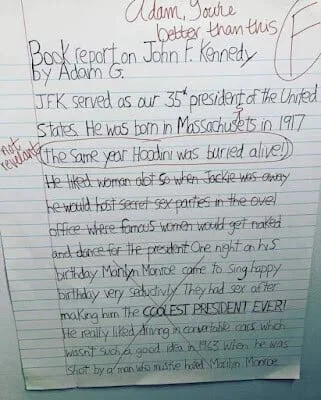 Adam, you're
better than this
F
Book report on John F. Kennedy
by Adam G.
JFK served as our 35th president of the United
States. He was born in Massachusets in 1917
not
revelant
(The same year Hoodini was buried alive!)
He liked woman alot so when Jackie was away
he would host secret sex parties in the ovel
office where famous women would get naked
and dance for the president One night on his
birthday Marilyn Monroe came to sing happy
birthday very seductivly. They had sex after
making him the COOLEST PRESIDENT EVER!
He really liked driving in convertable cars which
wasnt such a good idea in 1963 when he was
shot by a man who must've hated Marilyn Monroe